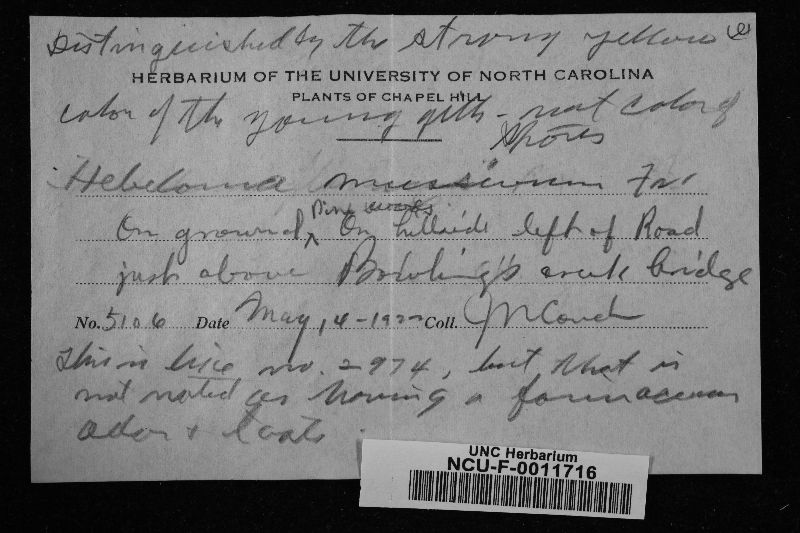 Distinguished by the strong yellow
HERBARIUM OF THE UNIVERSITY OF NORTH CAROLINA
PLANTS OF CHAPEL HILL
color of the young gills - not color of
spores
Hebeloma Fr.
Pine woods
On ground, On hillside left of Road
just above Bowling's creek bridge
No. 5106 Date May, 14-1922 Coll. J N Couch
This is like no. 2974, but that is
not noted as having a farinaceous
odor & taste.
UNC Herbarium
NCU-F-0011716